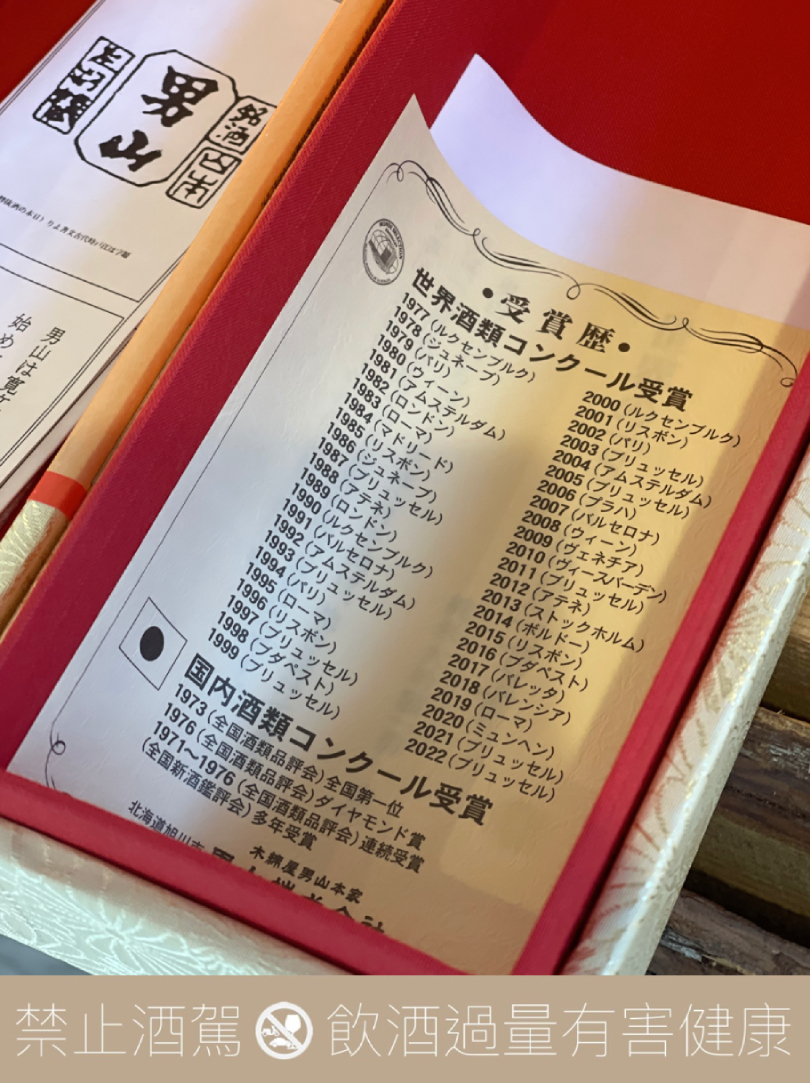 男山
銘酒
男山は寛
始め
・受賞歴・
世界酒類コンクール受賞
1977(ルクセンブルク)
1978(ジュネーブ)
1979(パリ)
1980(ウィーン)
1981(アムステルダム)
1982(ロンドン)
1983(ローマ)
1984(マドリード)
1985(リスボン)
1986(ジュネーブ)
1987(ブリュッセル)
1988(アテネ)
1989(ロンドン)
1990(ルクセンブルク)
1991(バルセロナ)
1992(アムステルダム)
1993(ブリュッセル)
1994(パリ)
1995(ローマ)
1996(リスボン)
1997(ブリュッセル)
1998(ブダペスト)
1999(ブリュッセル)
2000(ルクセンブルク)
2001(リスボン)
2002(パリ)
2003(ブリュッセル)
2004(アムステルダム)
2005(ブリュッセル)
2006(プラハ)
2007(バルセロナ)
2008(ウィーン)
2009(ヴェネチア)
2010(ヴィースバーデン)
2011(ブリュッセル)
2012(アテネ)
2013(ストックホルム)
2014(ボルドー)
2015(リスボン)
2016(ブダペスト)
2017(バレッタ)
2018(バレンシア)
2019(ローマ)
2020(ミュンヘン)
2021(ブリュッセル)
2022(ブリュッセル)
国内酒類コンクール受賞
1973(全国酒類品評会)全国第一位
1976(全国酒類品評会)ダイヤモンド賞
1971〜1976(全国酒類品評会)連続受賞
(全国新酒鑑評会)多年受賞
北海道旭川市
木綿屋男山本家
男山株式会社
禁止酒駕 飲酒過量有害健康